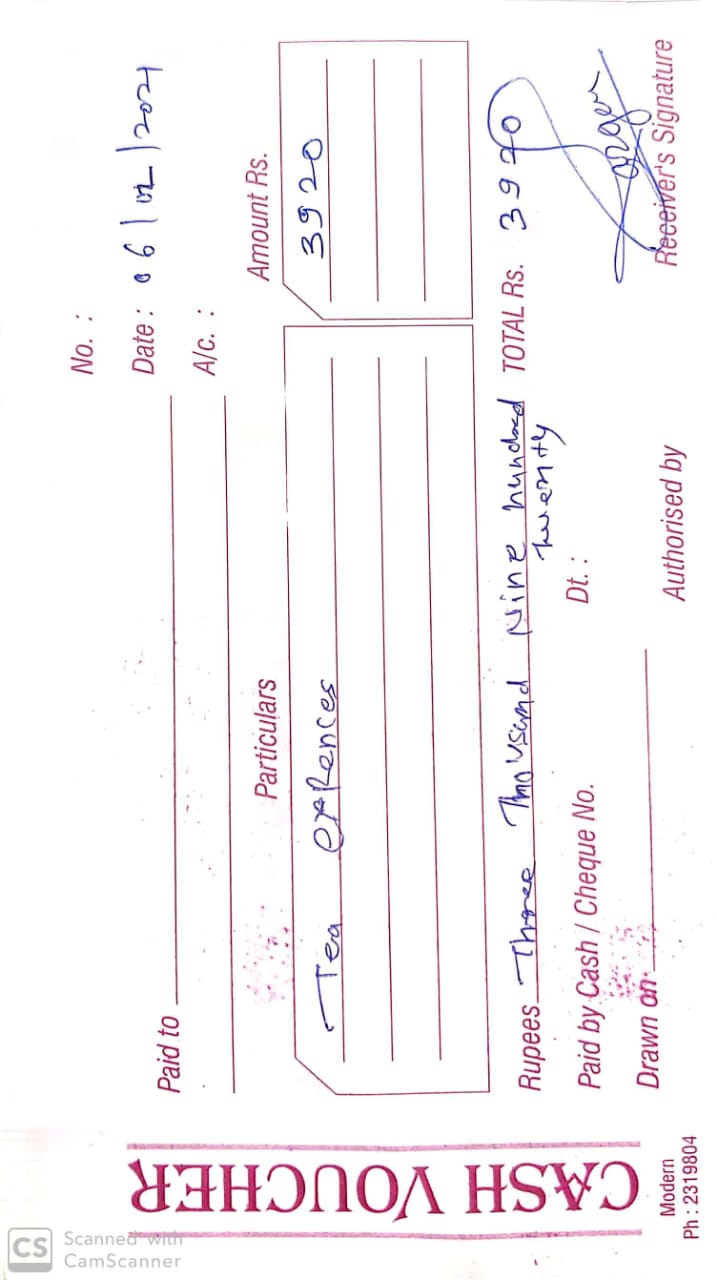 CASH VOUCHER
Modern
Ph : 2319804
No. :
Paid to
Date : 06/02/2021
A/c. :
Particulars
Amount Rs.
Tea expences
3920
Rupees Three Thousand Nine hundred
twenty
TOTAL Rs. 3920
Paid by Cash / Cheque No.
Dt. :
Drawn on
Authorised by
Receiver's Signature
CS
Scanned with
CamScanner